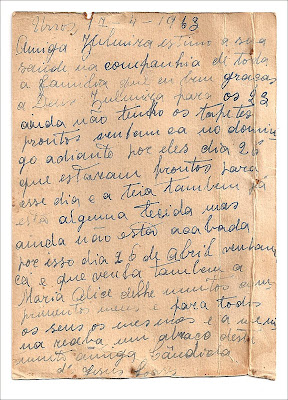 Urros 17-4-1963
Amiga Zulmira estimo a sua
saude na companhia de toda
a familia que eu bem graças
a Deus Zulmira para os 22
ainda não tenho os tapetes
prontos venham ca no domin
go adiante por eles dia 28
que estaram prontos para
esse dia e a teia tambem
esta alguma tecida mas
ainda não está acabada
por isso dia 28 de Abril venham
ca e que venha tambem a
Maria Alice delhe muitos cum
primentos meus e para todos
os seus os mesmos e a meni
na receba um abraço desta
muito amiga Candida
de Jesus